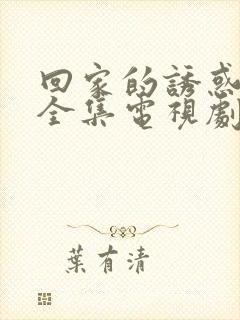 回家的誘惑
全集電視劇
葉有清